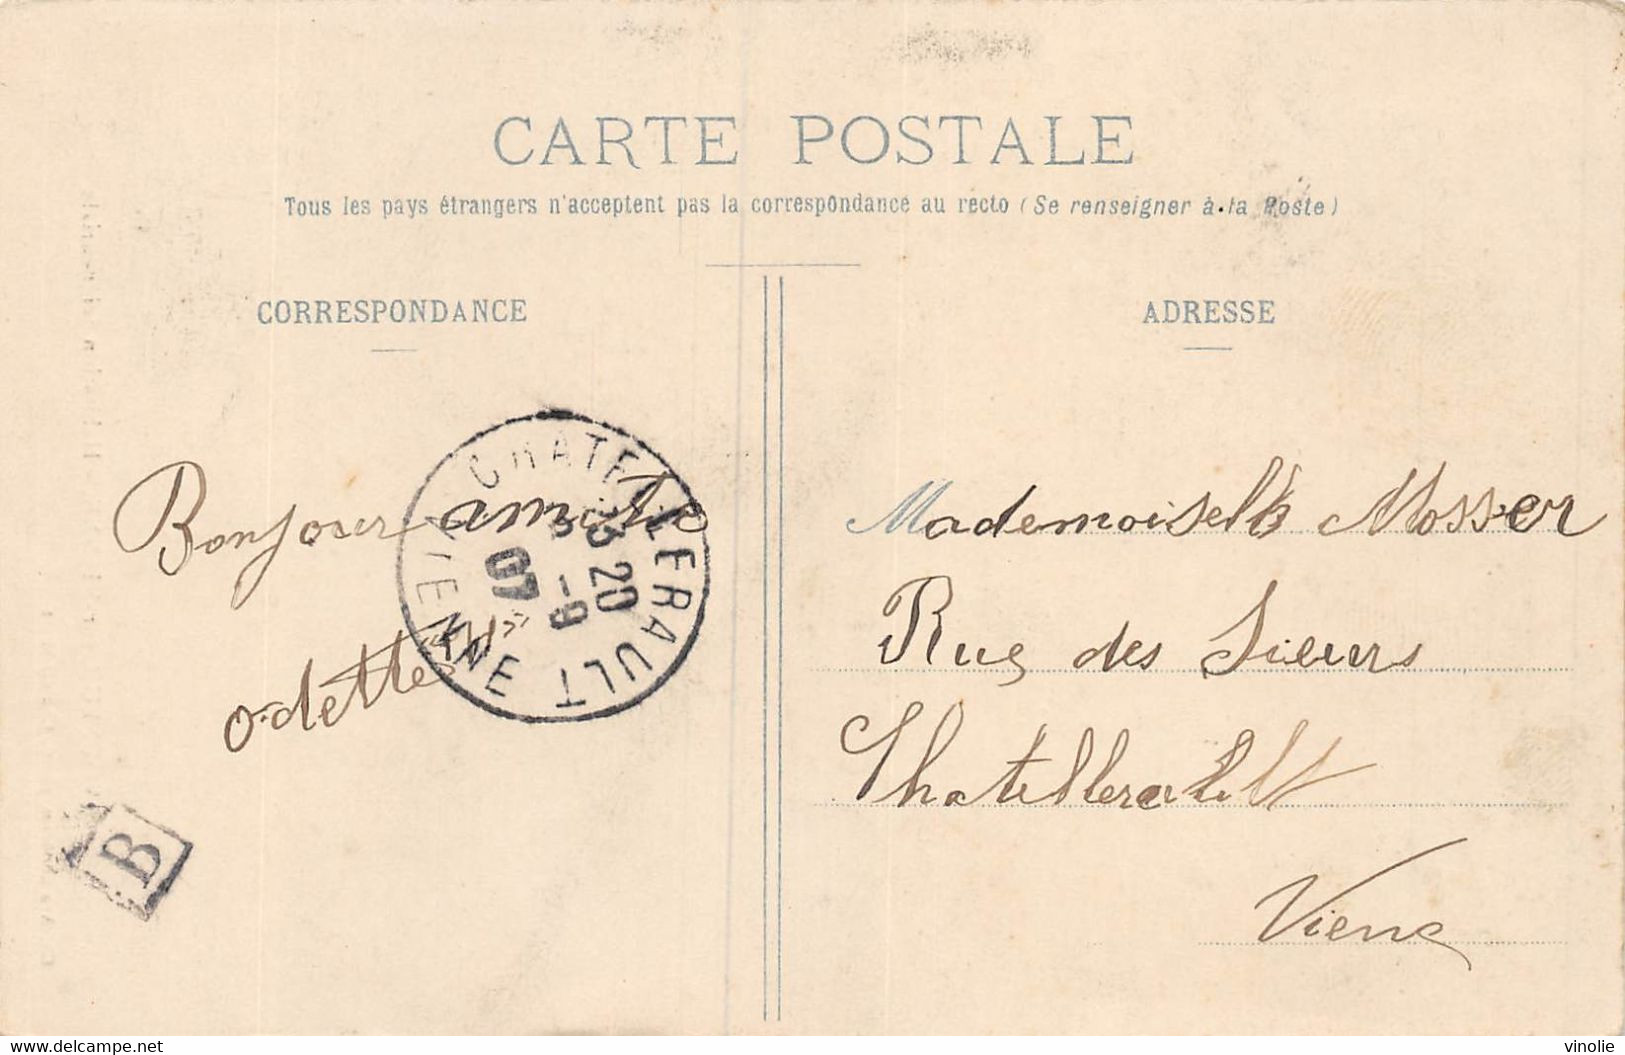 CARTE POSTALE
Tous les pays étrangers n'acceptent pas la correspondance au recto (Se renseigner à la Poste)
CORRESPONDANCE
ADRESSE
Bonjour amitié
odette
CHATELLERAULT
VIENNE
3 20
9 -
07
B
Mademoiselle Mosser
Rue des Sieurs
Chatellerault
Viene
delcampe.net
vinolie